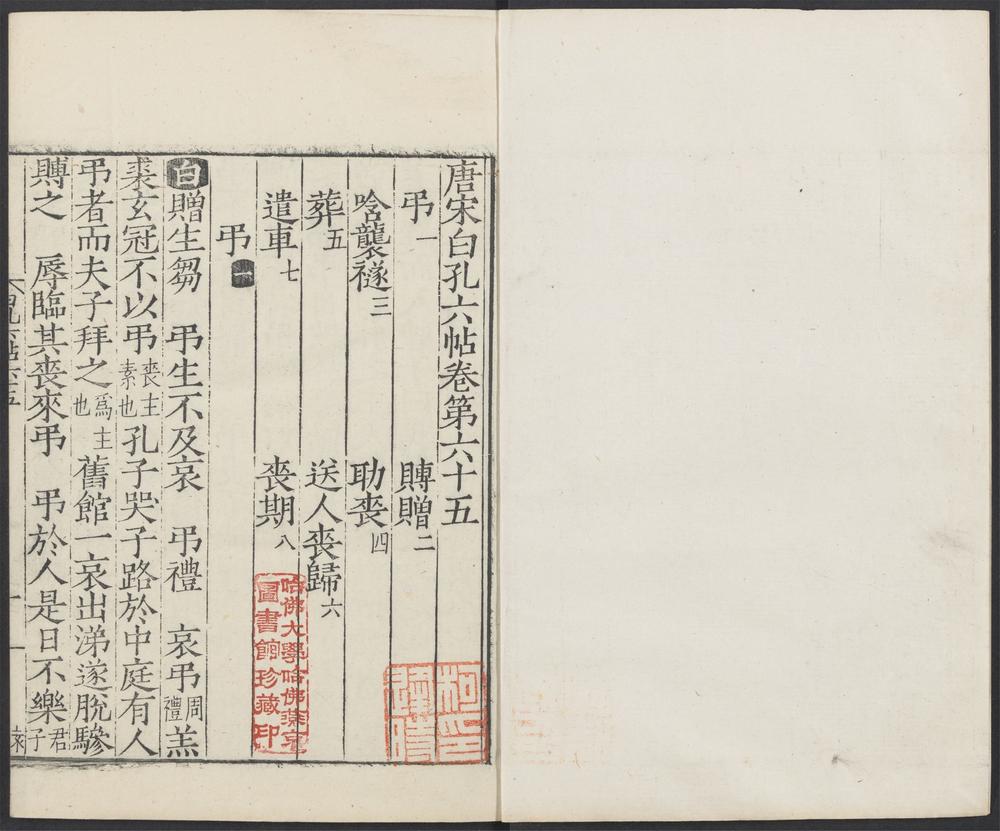 唐宋白孔六帖卷第六十五
弔一 賻贈二
唅襲襚三 助喪四
葬五 送人喪歸六
遣車七 喪期八
弔一
白贈生芻 弔生不及哀 弔禮 哀弔周禮羔
裘玄冠不以弔喪主素也孔子哭子路於中庭有人
弔者而夫子拜之為主也舊館一哀出涕遂脫驂
賻之 辱臨其喪來弔 弔於人是日不樂君子
六帖六十五 一
哈佛大學哈佛燕京
圖書館珍藏印